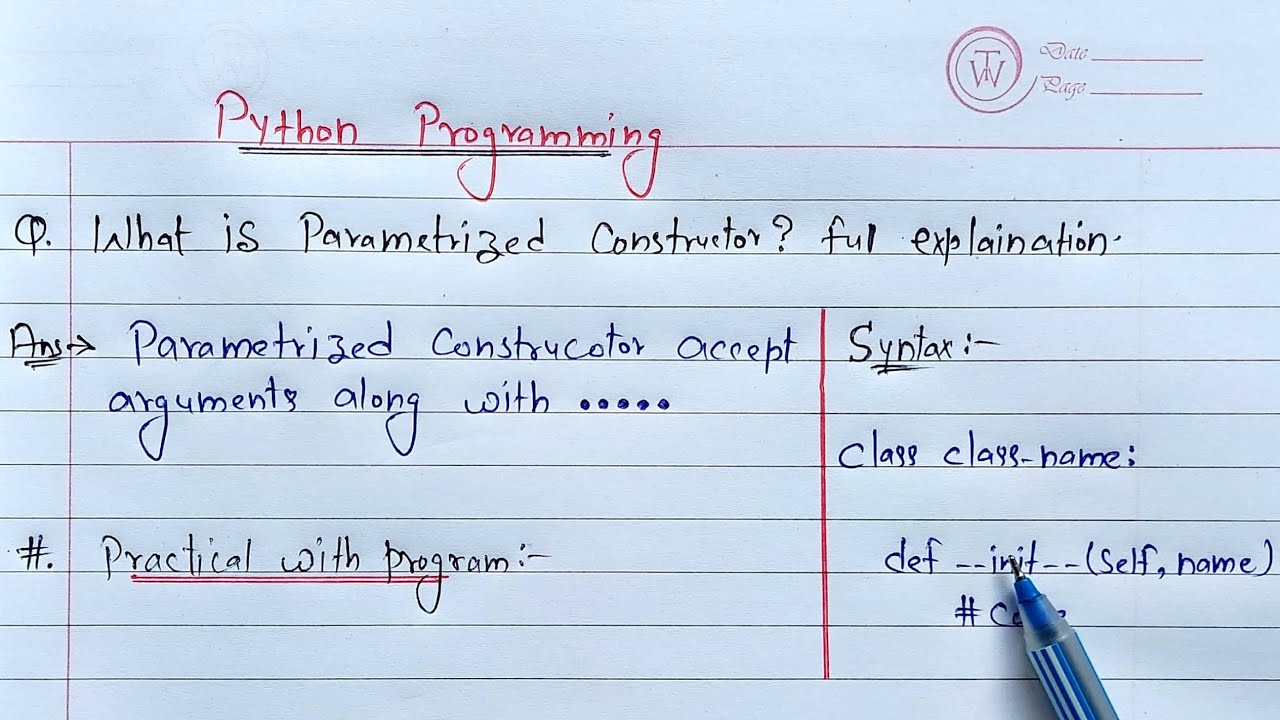 Date
Page
Python Programming
Q. What is Parametrized Constructor? full explaination.
Ans→ Parametrized Construcotor accept
arguments along with •••••
#. Practical with program:-
Syntax:-
class class-name:
def --init--(self, name)
#